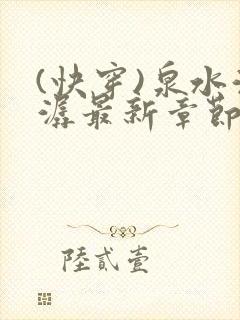 (快穿)泉水
潺最新章節
陸貳壹